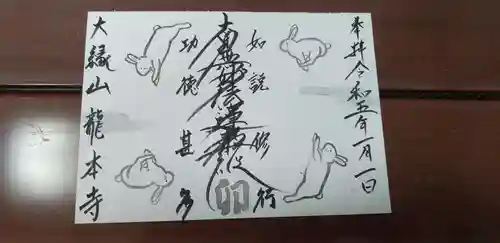 奉拝 令和五年一月一日
如説修行
南無妙法蓮華経
功徳甚多
大縁山 龍本寺
卯